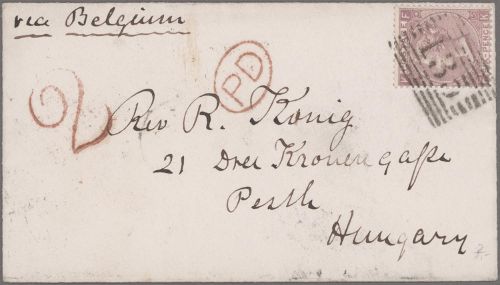 via Belgium
PD
2
Rev R. König
21 Drei Kronengaße
Pesth
Hungary